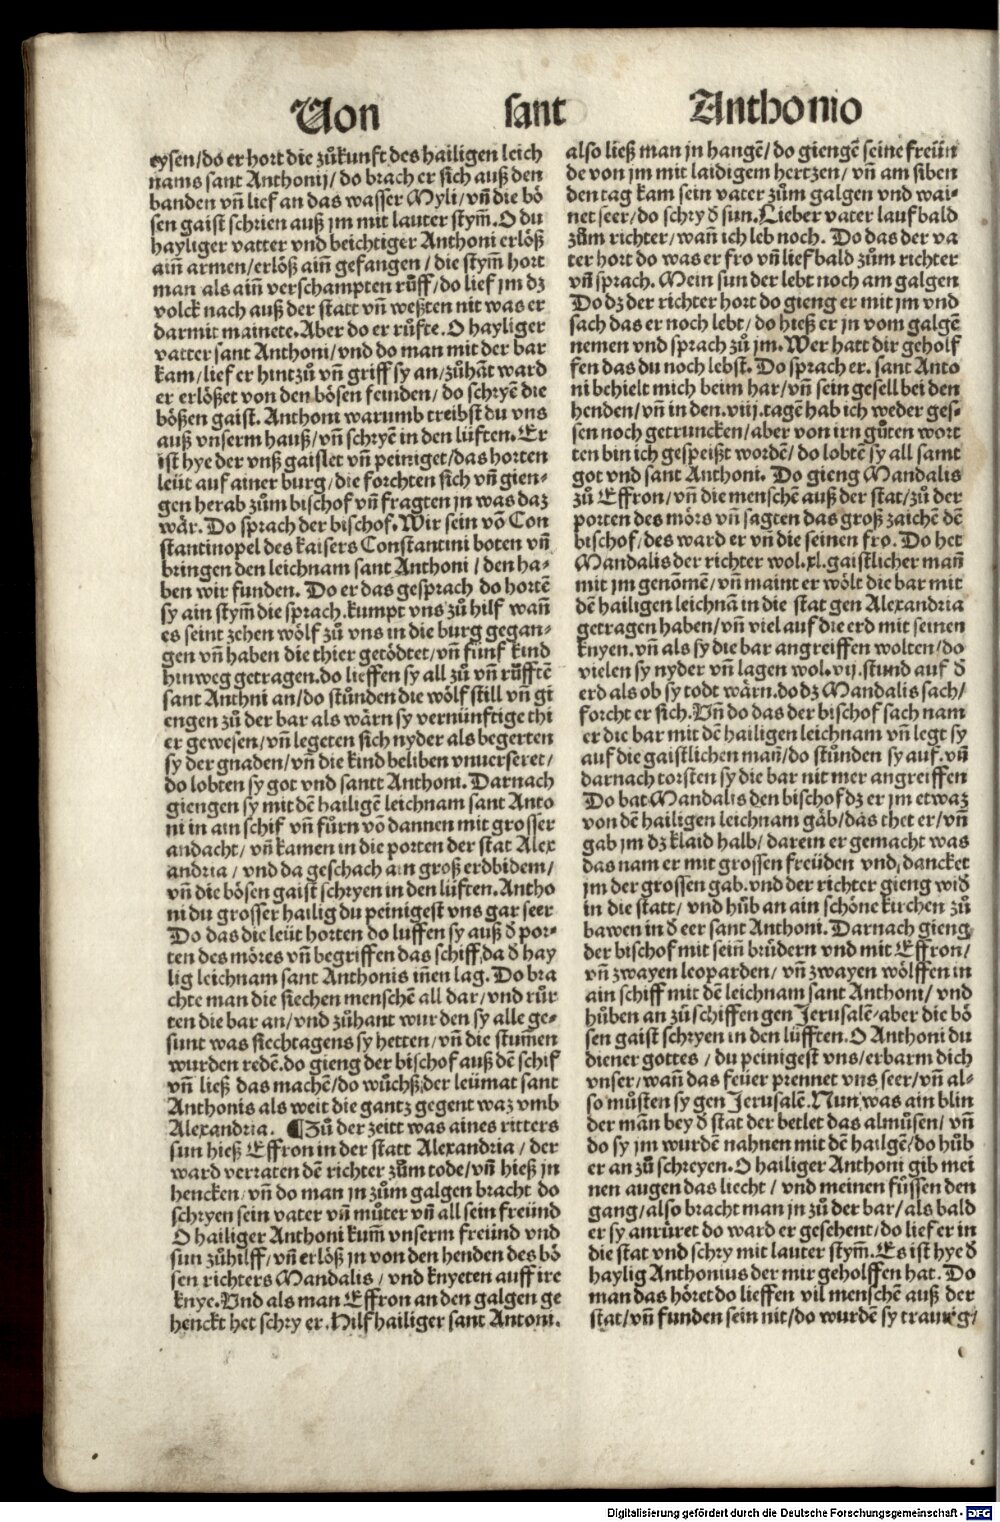 Von sant Anthonio
eysen/do er hort die zůkunft des hailigen leich
nams sant Anthonij/do brach er sich auß den
banden vñ lief an das wasser Myli/vñ die bö
sen gaist schrien auß jm mit lauter stym̃.O du
hayliger vatter vnd beichtiger Anthoni erlöß
ain̄ armen/erlöß ain̄ gefangen/die stym̃ hort
man als ain̄ verschampten růff/do lief jm dz
volck nach auß der statt vñ weßten nit was er
darmit mainete.Aber do er růfte.O hayliger
vatter sant Anthoni/vnd do man mit der bar
kam/lief er hintzů vñ griff sy an/zůhāt ward
er erlößet von den bösen feinden/do schryē die
bößen gaist.Anthoni warumb treibst du vns
auß vnserm hauß/vñ schryē in den lüften.Er
ist hye der vnß gaislet vñ peiniget/das horten
leüt auf ainer burg/die forchten sich vñ gien⸗
gen herab zům bischof vñ fragten jn was daz
wär.Do sprach der bischof.Wir sein vō Con
stantinopel des kaisers Constantini boten vñ
bringen den leichnam sant Anthoni/den ha⸗
ben wir funden. Do er das gesprach do hortē
sy ain stym̃ die sprach.kumpt vns zů hilf wañ
es seint zehen wölf zů vns in die burg gegan⸗
gen vñ haben die thier getödtet/vñ fünf kind
hinweg getragen.do lieffen sy all zů vñ růfftē
sant Anthni an/do stůnden die wölf still vñ gi
engen zů der bar als wärn sy vernünftige thi
er gewesen/vñ legeten sich nyder als begerten
sy der gnaden/vñ die kind beliben vnuerseret/
do lobten sy got vnd santt Anthoni.Darnach
giengen sy mit dē hailigē leichnam sant Anto
ni in ain schif vñ fůrn vō dannen mit grosser
andacht/vñ kamen in die porten der stat Alex
andria/vnd da geschach ain groß erdbidem/
vñ die bösen gaist schryen in den lüften.Antho
ni du grosser hailig du peinigest vns gar seer
Do das die leüt horten do luffen sy auß d̄ por⸗
ten des möres vñ begriffen das schiff,da d̄ hay
lig leichnam sant Anthonis iñen lag.Do bra
chte man die siechen menschē all dar/vnd růr
ten die bar an/vnd zůhant wurden sy alle ge⸗
sunt was siechtagens sy hetten/vñ die stum̃en
wurden redē.do gieng der bischof auß dē schif
vñ ließ das machē/do wůchß der leümat sant
Anthonis als weit die gantz gegent waz vmb
Alexandria. ¶Zů der zeitt was aines ritters
sun hieß Effron in der statt Alexandria/der
ward verraten dē richter zům tode/vñ hieß jn
hencken/vñ do man jn zům galgen bracht do
schryen sein vater vñ můter vñ all sein freünd
O hailiger Anthoni kum̃ vnserm freünd vnd
sun zůhilff/vñ erlöß jn von den henden des bö
sen richters Mandalis/vnd knyeten auff ire
knye.Vnd als man Effron an den galgen ge
henckt het schry er.Hilf hailiger sant Antoni.
also ließ man jn hangē/do giengē seine freün
de von jm mit laidigem hertzen/vñ am siben
den tag kam sein vater zům galgen vnd wai⸗
net seer/do schry d̄ sun.Lieber vater lauf bald
zům richter/wañ ich leb noch. Do das der va
ter hort do was er fro vñ lief bald zům richter
vñ sprach.Mein sun der lebt noch am galgen
Do dz der richter hort do gieng er mit jm vnd
sach das er noch lebt/do hieß er jn vom galgē
nemen vnd sprach zů jm.Wer hatt dir geholf
fen das du noch lebst.Do sprach er.sant Anto
ni behielt mich beim har/vñ sein gesell bei den
henden/vñ in den.viij.tagē hab ich weder ges⸗
sen noch getruncken/aber von irn gůten wort
ten bin ich gespeißt wordē/do lobtē sy all samt
got vnd sant Anthoni. Do gieng Mandalis
zů Effron/vñ die menschē auß der stat/zů der
porten des mörs vñ sagten das groß zaichē dē
bischof/des ward er vñ die seinen fro.Do het
Mandalis der richter wol.xl.gaistlicher mañ
mit jm genōmē/vñ maint er wölt die bar mit
dē hailigen leichnā in die stat gen Alexandria
getragen haben/vñ viel auf die erd mit seinen
knyen.vñ als sy die bar angreiffen wolten/do
vielen sy nyder vñ lagen wol.vij.stund auf d̄
erd als ob sy todt wärn.do dz Mandalis sach/
forcht er sich.Vñ do das der bischof sach nam
er die bar mit dē hailigen leichnam vñ legt sy
auf die gaistlichen mañ/do stůnden sy auf.vñ
darnach torsten sy die bar nit mer angreiffen
Do bat Mandalis den bischof dz er jm etwaz
von dē hailigen leichnam gäb/das thet er/vñ
gab jm dz klaid halb/darein er gemacht was
das nam er mit grossen freüden vnd dancket
jm der grossen gab.vnd der richter gieng wid̄
in die statt/vnd hůb an ain schöne kirchen zů
bawen in d̄ eer sant Anthoni.Darnach gieng
der bischof mit sein̄ brüdern vnd mit Effron/
vñ zwayen leoparden/vñ zwayen wölffen in
ain schiff mit dē leichnam sant Anthoni/vnd
hůben an zů schiffen gen Jerusalē/aber die bö
sen gaist schryen in den lüfften.O Anthoni du
diener gottes/du peinigest vns/erbarm dich
vnser/wañ das feüer prennet vns seer/vñ al⸗
so můsten sy gen Jerusalē.Nun was ain blin
der man bey d̄ stat der betlet das almůsen/vñ
do sy jm wurdē nahnen mit dē hailgē/do hůb
er an zů schreyen.O hailiger Anthoni gib mei
nen augen das liecht/vnd meinen füssen den
gang/also bracht man jn zů der bar/als bald
er sy anrüret do ward er gesehent/do lief er in
die stat vnd schry mit lauter stym̃.Es ist hye d̄
haylig Anthonius der mir geholffen hat. Do
man das höret do lieffen vil menschē auß der
stat/vñ funden sein nit/do wurdē sy traurig/
Digitalisierung gefördert durch die Deutsche Forschungsgemeinschaft - DFG